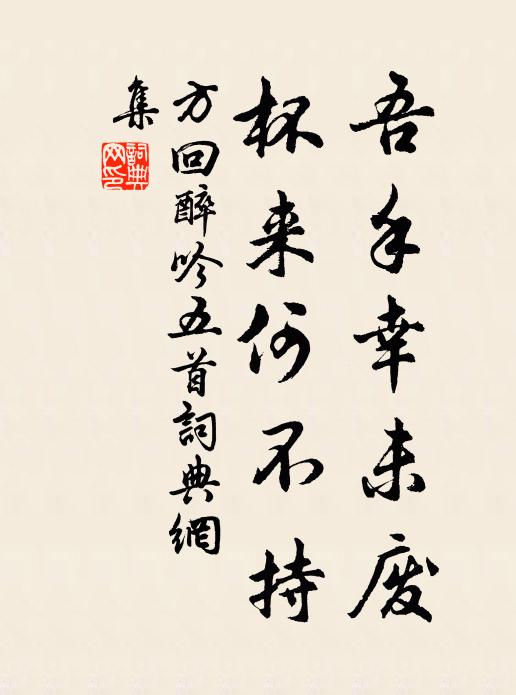 吾手幸未废
杯来何不持
方回醉吟五首詞典網
集
詞典
网印